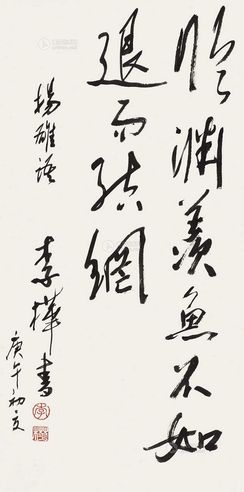 临渊羡鱼不如
退而结網
揚雄语
李樺书
庚午初夏